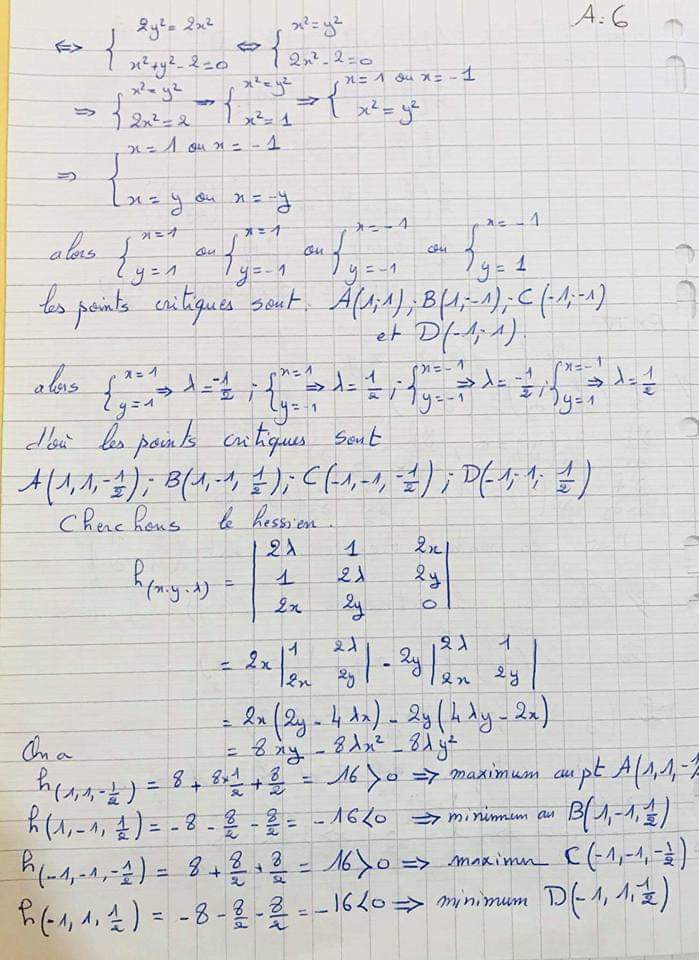 A:6
⟺ { 2y² = 2x² ; x²+y²-2=0 ⟺ { x²=y² ; 2x²-2=0
⟹ { x²=y² ; 2x²=2 ⟹ { x²=y² ; x²=1 ⟹ { x=1 ou x=-1 ; x²=y²
⟹ { x=1 ou x=-1 ; x=y ou x=-y
alors { x=1 ; y=1 ou { x=1 ; y=-1 ou { x=-1 ; y=-1 ou { x=-1 ; y=1
les points critiques sont. A(1;1); B(1;-1); C(-1;-1)
et D(-1;1).
alors { x=1 ; y=1 ⟹ λ=-1/2 ; { x=1 ; y=-1 ⟹ λ=1/2 ; { x=-1 ; y=-1 ⟹ λ=-1/2 ; { x=-1 ; y=1 ⟹ λ=1/2
d'où les points critiques sont
A(1,1,-1/2); B(1,-1,1/2); C(-1,-1,-1/2); D(-1;1; 1/2)
Cherchons le hessien.
h(x.y.λ) = | 2λ 1 2x |
| 1 2λ 2y |
| 2x 2y 0 |
= 2x | 1 2λ ; 2x 2y | - 2y | 2λ 1 ; 2x 2y |
= 2x(2y - 4λx) - 2y(4λy - 2x)
On a = 8xy - 8λx² - 8λy²
h(1,1,-1/2) = 8 + 8×1/2 + 8/2 = 16 > 0 ⟹ maximum au pt A(1,1,-1
h(1,-1,1/2) = -8 - 8/2 - 8/2 = -16<0 ⟹ minimum au B(1,-1,1/2)
h(-1,-1,-1/2) = 8 + 8/2 + 8/2 = 16>0 ⟹ maximum C(-1,-1,-1/2)
h(-1,1,1/2) = -8 - 8/2 - 8/2 = -16<0 ⟹ minimum D(-1,1,1/2)